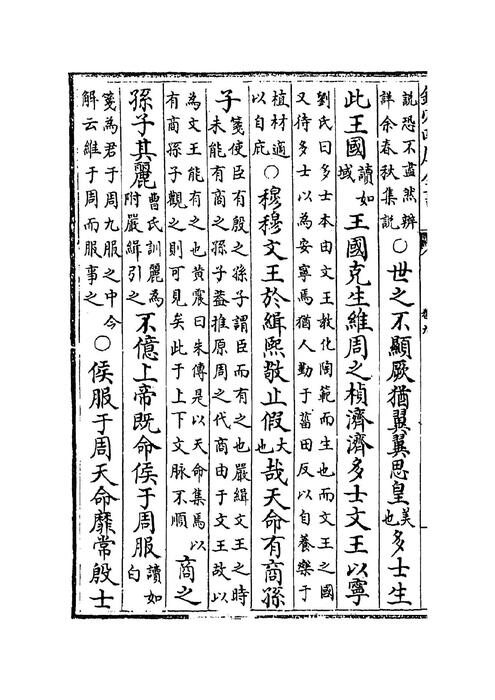 說恐不盡然辨
詳余春秋集説
○世之不顯厥猶翼翼思皇美也多士生
此王國讀如域王國克生維周之楨濟濟多士文王以寧
劉氏曰多士本由文王教化陶範而生也而文王之國
又待多士以為安寧焉猶人勤于菑田反以自養樂于
植材適
以自庇
○穆穆文王於緝熙敬止假大也哉天命有商孫
子
箋使臣有殷之孫子謂臣而有之也嚴緝文王之時
未能有商之孫子蓋推原周之代商由于文王故以
為文王能有之也黄震曰朱傳是以天命集焉以
有商孫子觀之則可見矣此于上下文脉不順
商之
孫子其麗
曹氏訓麗為
附嚴緝引之
不億上帝既命侯于周服讀如白
箋為君于周九服之中今
解云維于周而服事之
○侯服于周天命靡常殷士